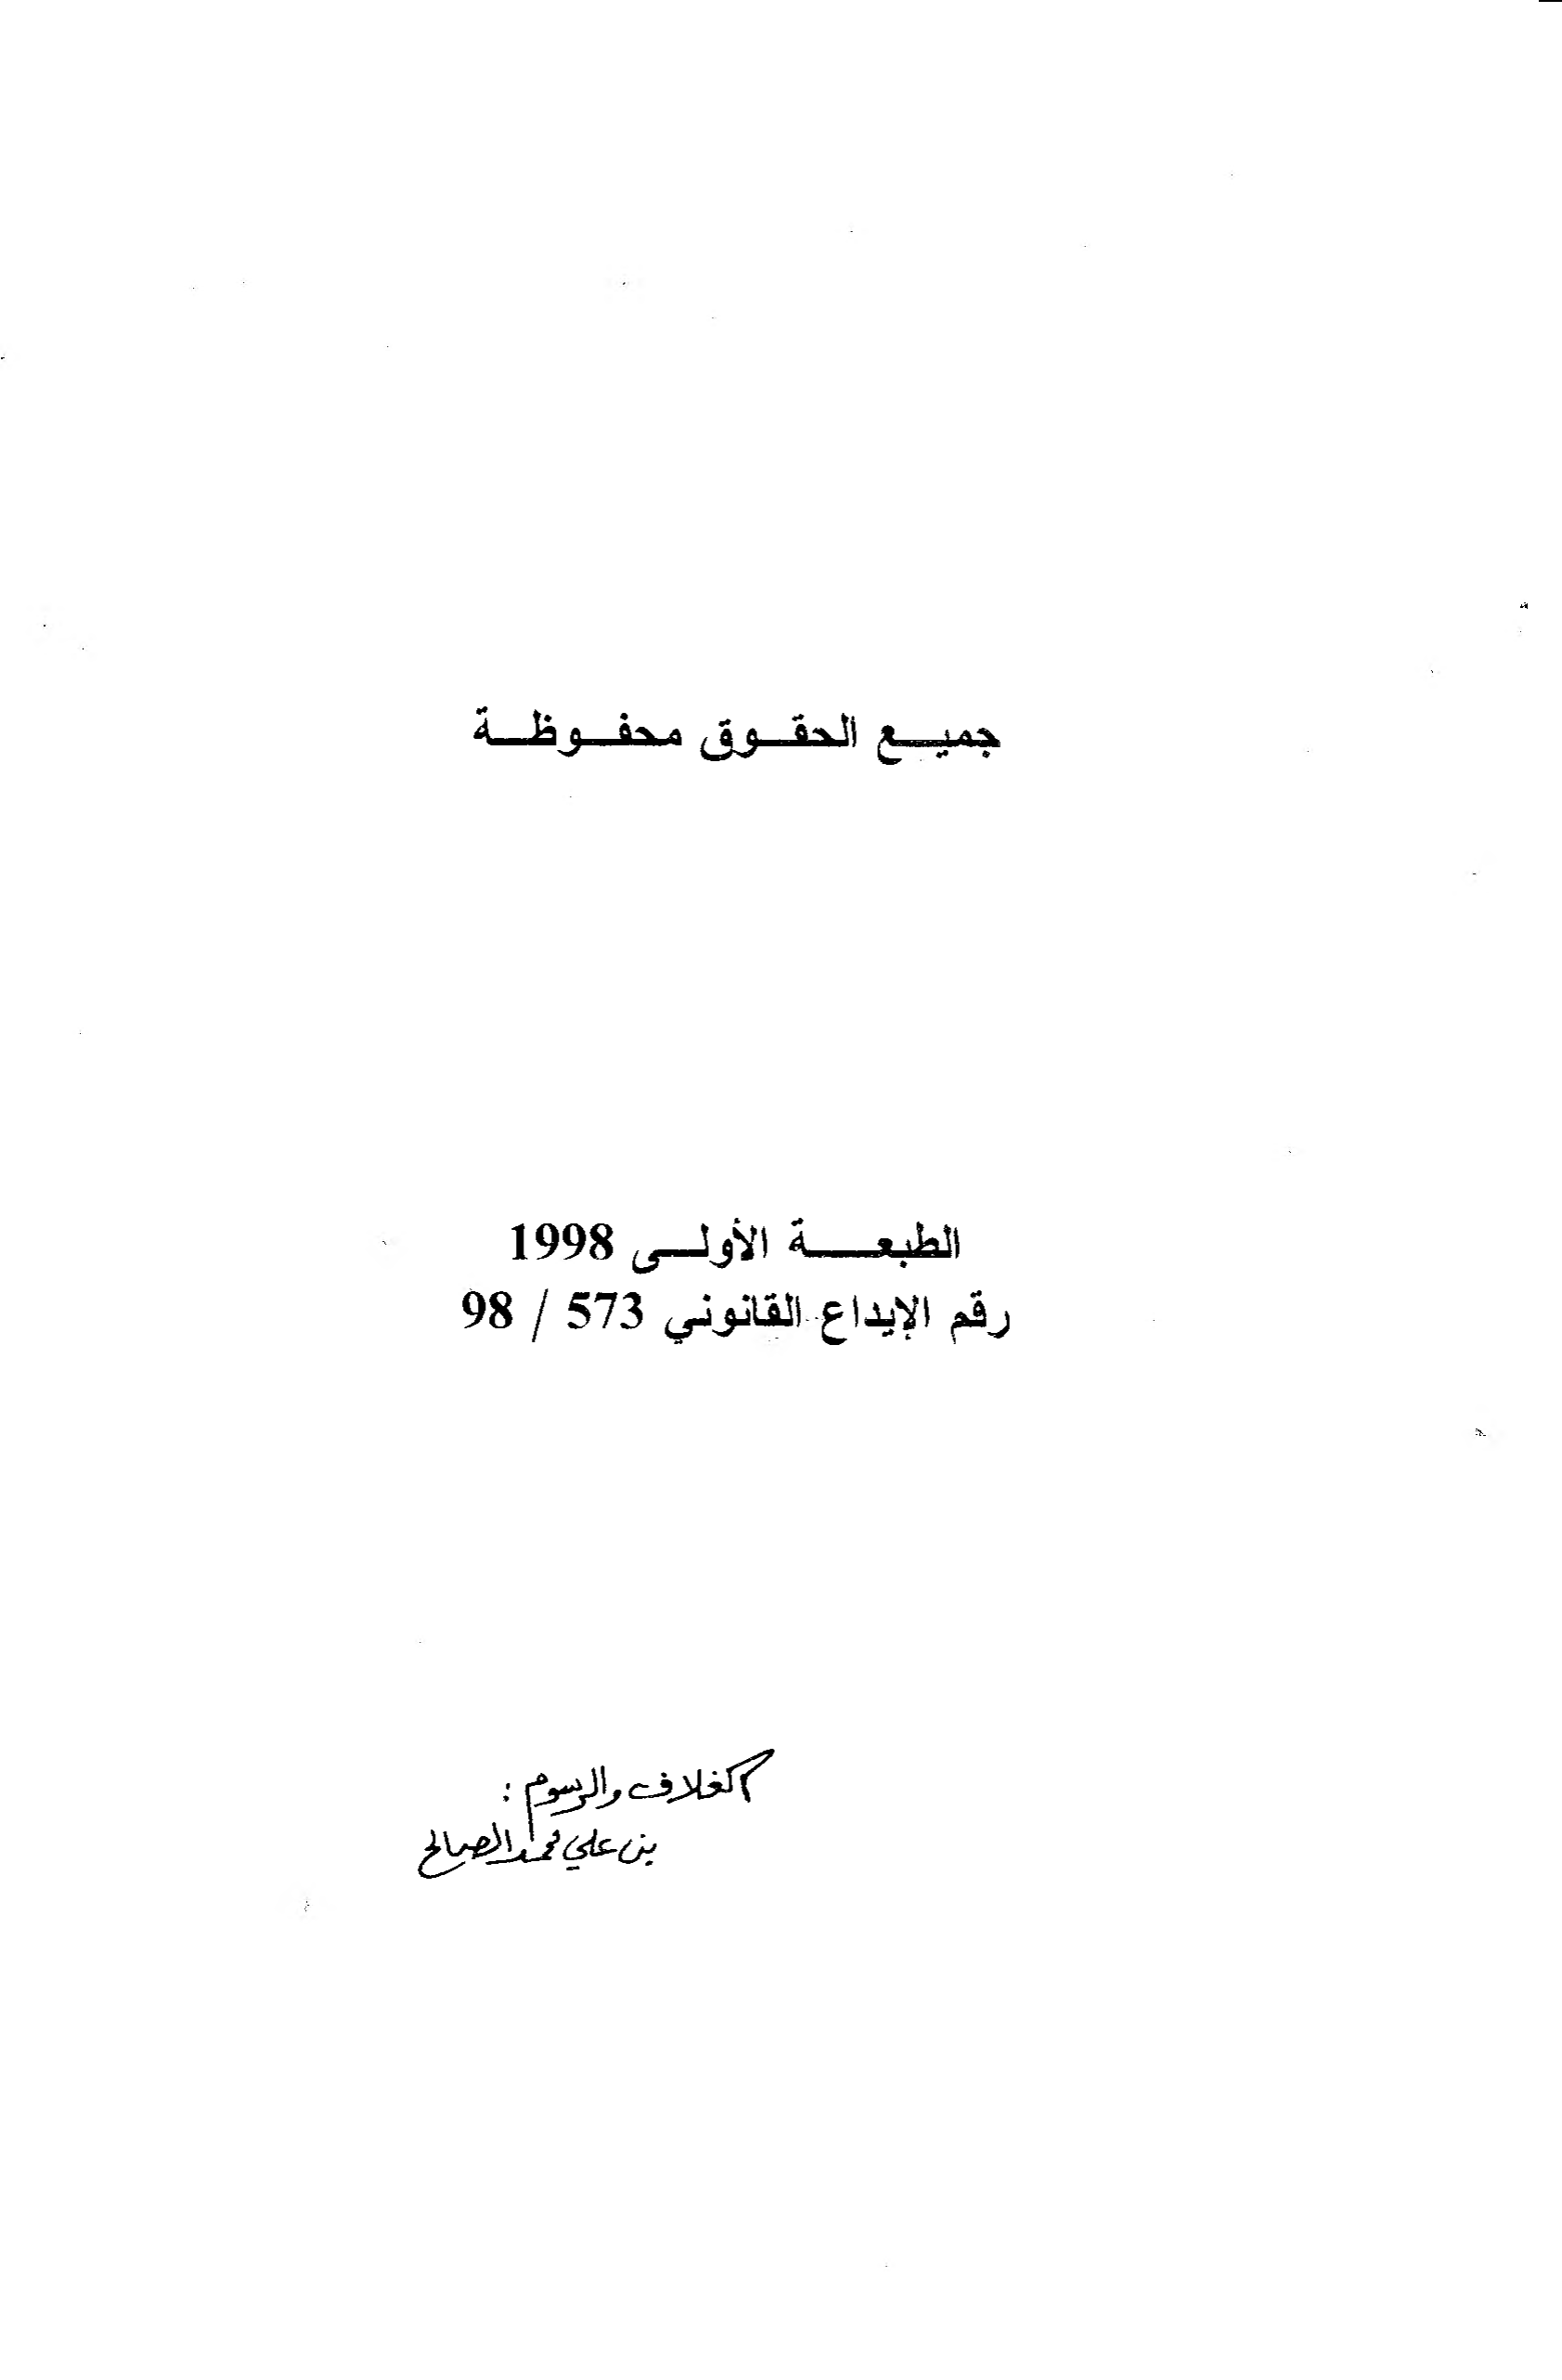 جميع الحقوق محفوظة
الطبعة الأولى 1998
رقم الإيداع القانوني 573 / 98
الغلاف والرسوم :
بن علي محمد الصالح